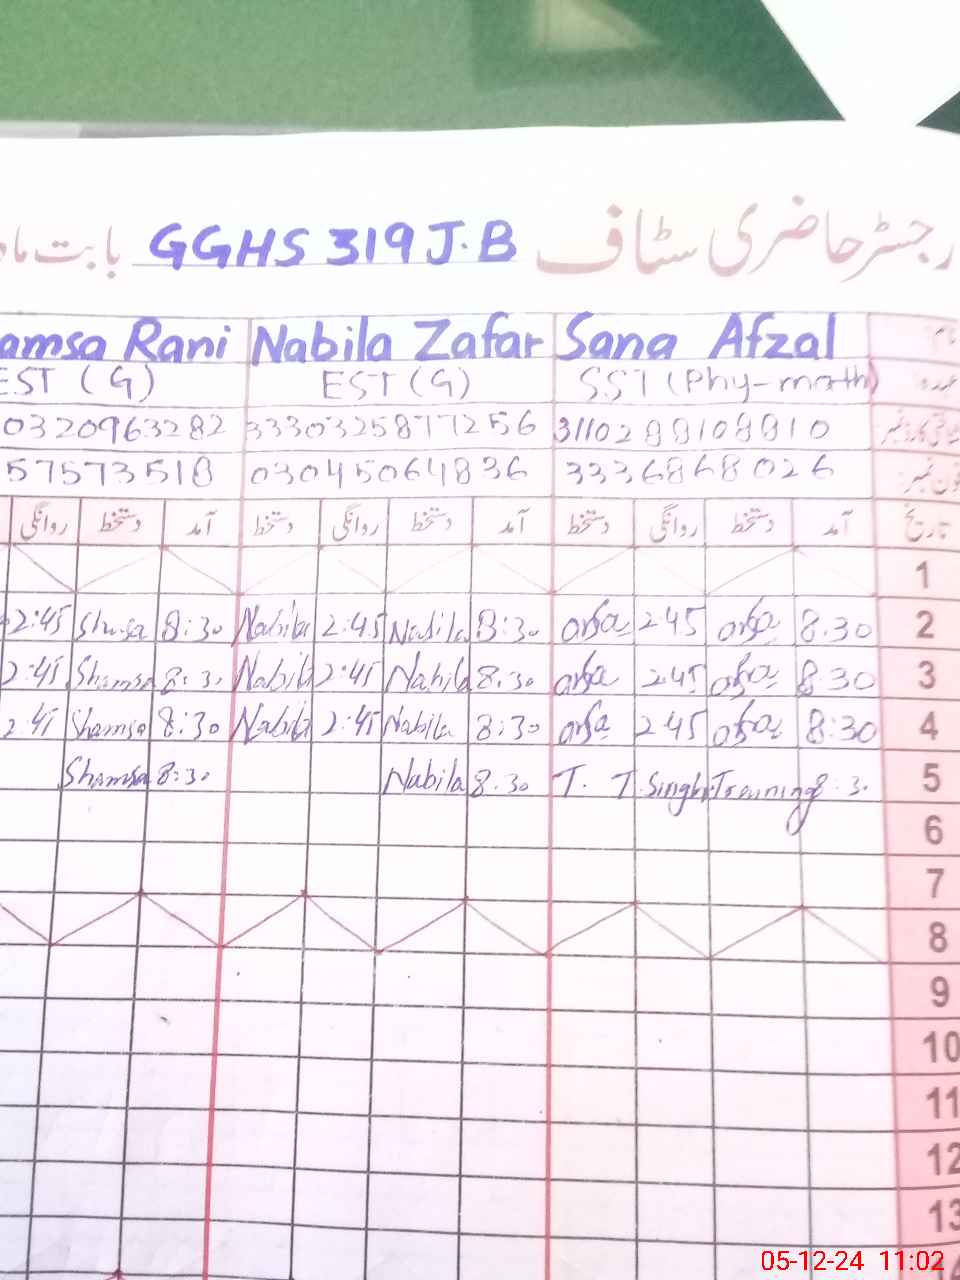 رجسٹر حاضری سٹاف GGHS 319 J.B بابت ماہ
نام Sana Afzal Nabila Zafar amsa Rani
عہدہ SST (Phy-math) EST (G) EST (G)
شناختی کارڈ نمبر 3110288108810 3330325877256 0320963282
فون نمبر 3336868026 03045064836 57573518
تاریخ آمد دستخط روانگی دستخط آمد دستخط روانگی دستخط آمد دستخط روانگی
1
2 8.30 2:45 8:30 Nabila 2:45 Nabila 8:30 Shmsa 2:45
3 8:30 2:45 8.30 Nabila 2:45 Nabila 8:3. Shamsa 2:45
4 8:30 2:45 8:30 Nabila 2:45 Nabila 8:30 Shamsa 2:45
5 T. T. Singh Training 8:3. 8.30 Nabila 8:30 Shamsa
6
7
8
9
10
11
12
13
05-12-24 11:02